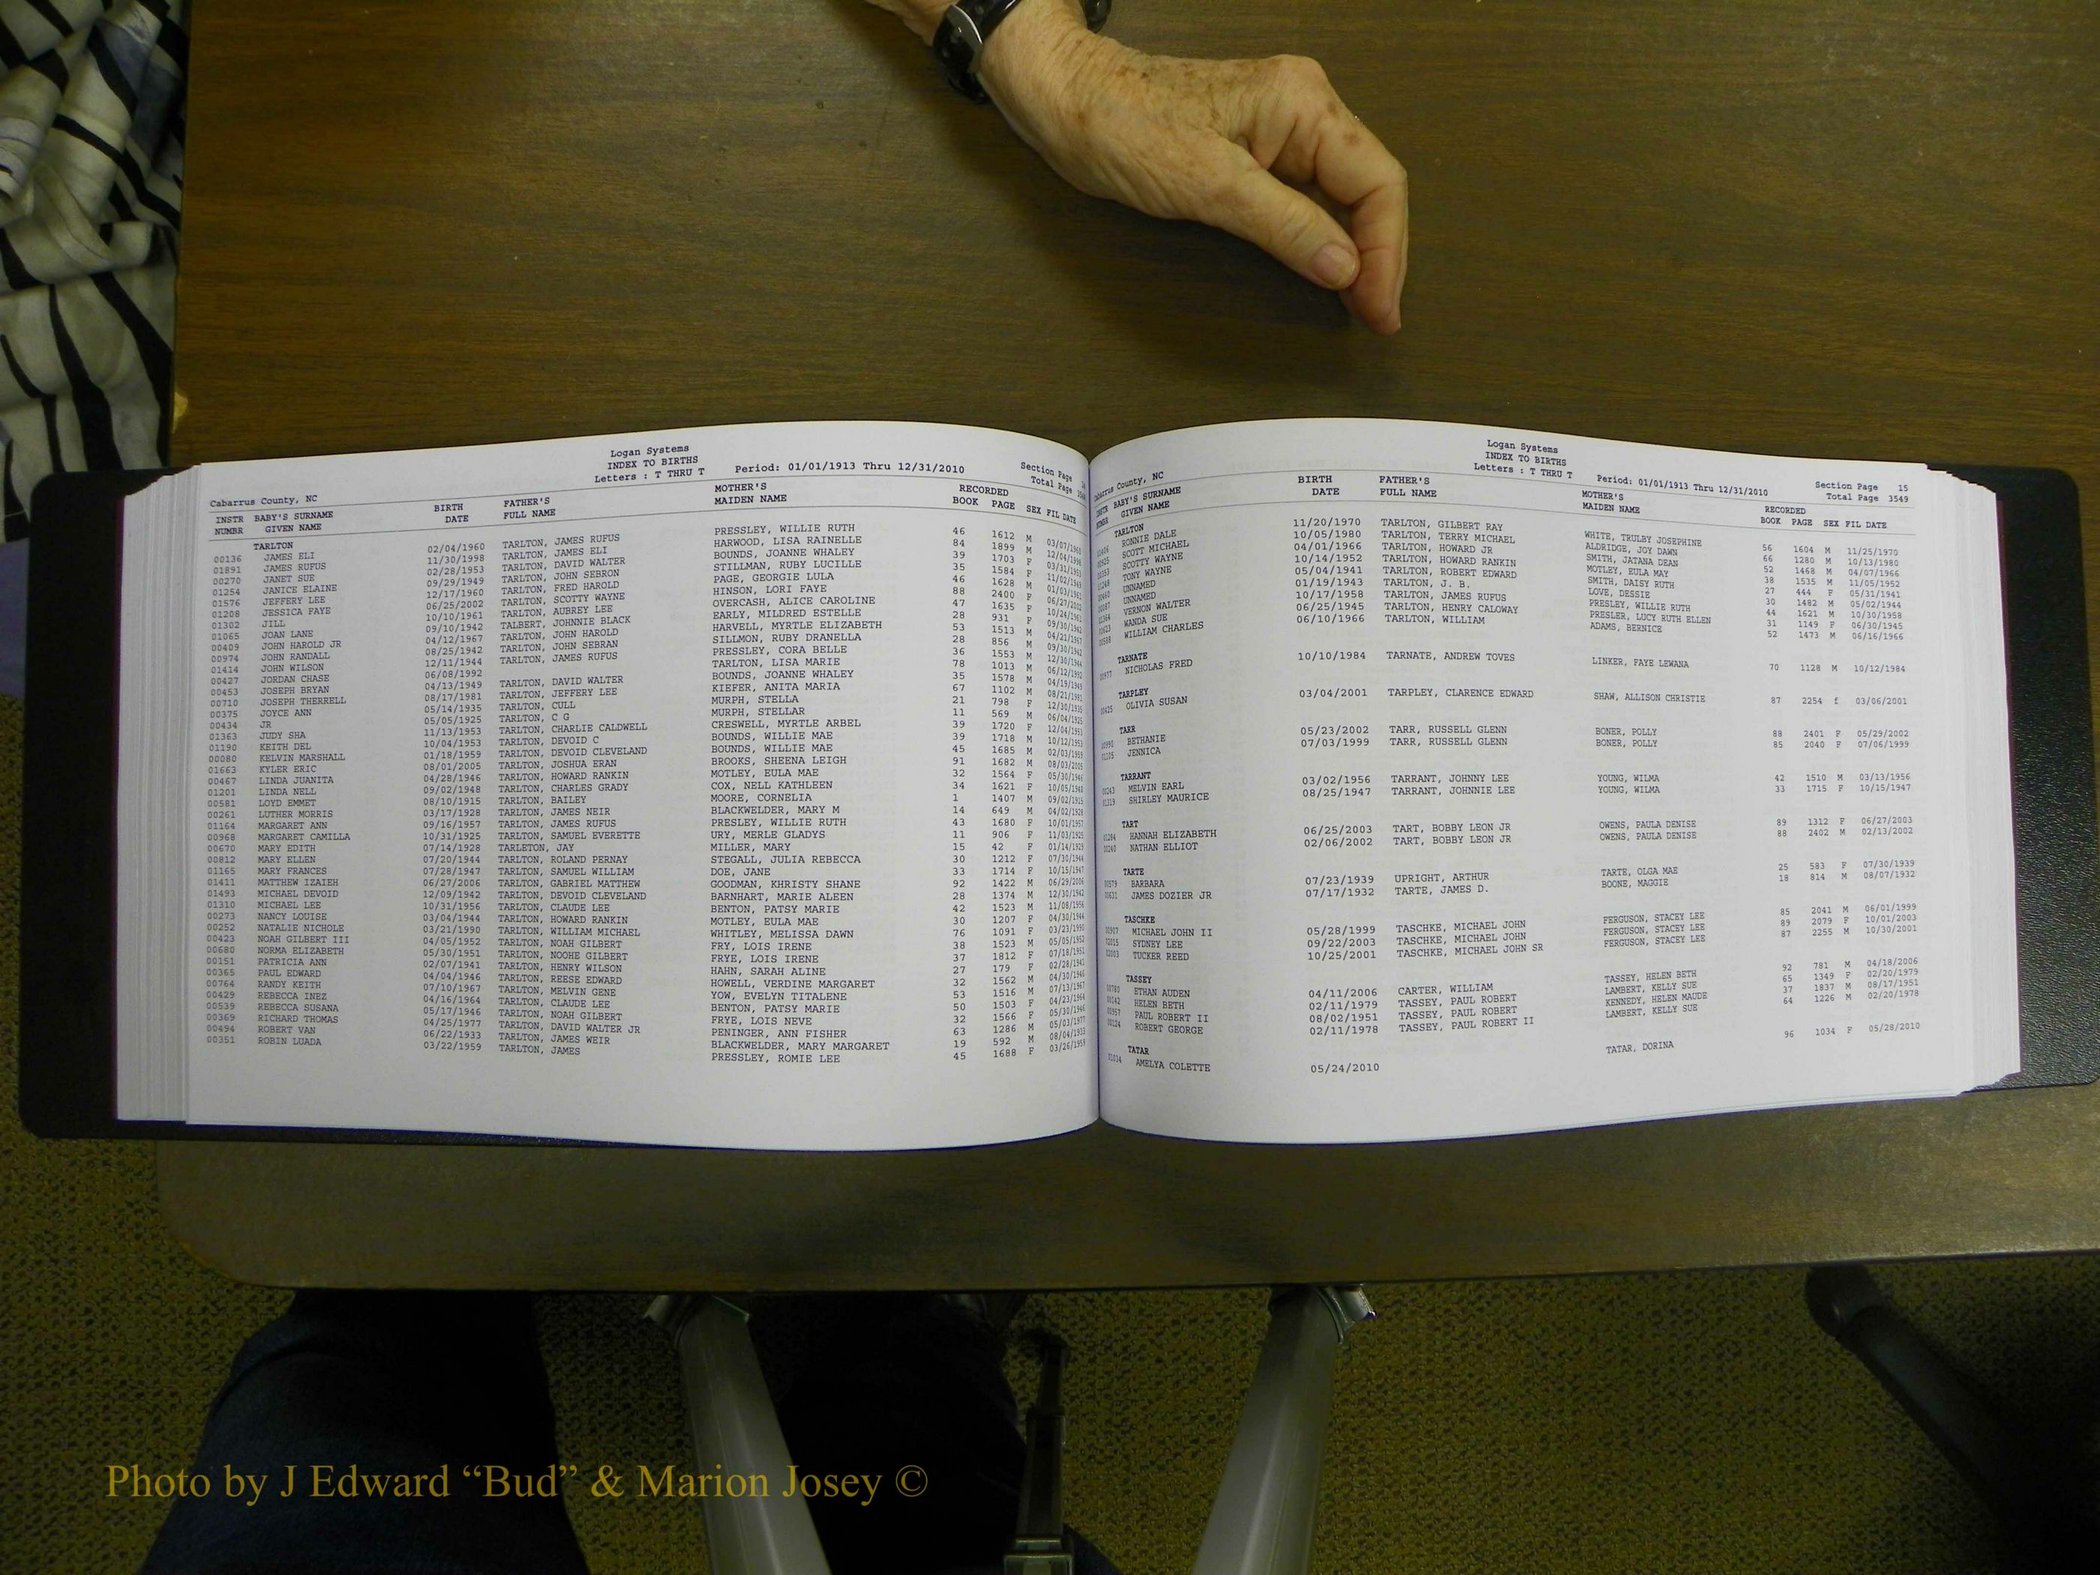 Logan Systems
INDEX TO BIRTHS
Letters : T THRU T Period: 01/01/1913 Thru 12/31/2010
Section Page
Total Page
Cabarrus County, NC
INSTR BABY'S SURNAME BIRTH FATHER'S MOTHER'S RECORDED
NUMBR GIVEN NAME DATE FULL NAME MAIDEN NAME BOOK PAGE SEX FIL DATE
TARLTON
00136 JAMES ELI 02/04/1960 TARLTON, JAMES RUFUS PRESSLEY, WILLIE RUTH 46 1612 M 03/07/1960
01891 JAMES RUFUS 11/30/1998 TARLTON, JAMES ELI HARWOOD, LISA RAINELLE 84 1899 M 12/04/1998
00270 JANET SUE 02/28/1953 TARLTON, DAVID WALTER BOUNDS, JOANNE WHALEY 39 1703 F 03/31/1953
01254 JANICE ELAINE 09/29/1949 TARLTON, JOHN SEBRON STILLMAN, RUBY LUCILLE 35 1584 F 11/02/1949
01576 JEFFERY LEE 12/17/1960 TARLTON, FRED HAROLD PAGE, GEORGIE LULA 46 1628 M 01/03/1961
01208 JESSICA FAYE 06/25/2002 TARLTON, SCOTTY WAYNE HINSON, LORI FAYE 88 2400 F 06/27/2002
01302 JILL 10/10/1961 TARLTON, AUBREY LEE OVERCASH, ALICE CAROLINE 47 1635 F 10/24/1961
01065 JOAN LANE 09/10/1942 TALBERT, JOHNNIE BLACK EARLY, MILDRED ESTELLE 28 931 F 09/30/1942
00409 JOHN HAROLD JR 04/12/1967 TARLTON, JOHN HAROLD HARVELL, MYRTLE ELIZABETH 53 1513 M 04/21/1967
00974 JOHN RANDALL 08/25/1942 TARLTON, JOHN SEBRAN SILLMON, RUBY DRANELLA 28 856 M 09/30/1942
01414 JOHN WILSON 12/11/1944 TARLTON, JAMES RUFUS PRESSLEY, CORA BELLE 36 1553 M 12/30/1944
00427 JORDAN CHASE 06/08/1992 TARLTON, LISA MARIE 78 1013 M 06/12/1992
00453 JOSEPH BRYAN 04/13/1949 TARLTON, DAVID WALTER BOUNDS, JOANNE WHALEY 35 1578 M 04/19/1949
00710 JOSEPH THERRELL 08/17/1981 TARLTON, JEFFERY LEE KIEFER, ANITA MARIA 67 1102 M 08/21/1981
00375 JOYCE ANN 05/14/1935 TARLTON, CULL MURPH, STELLA 21 798 F 12/30/1935
00434 JR 05/05/1925 TARLTON, C G MURPH, STELLAR 11 569 M 06/04/1925
01363 JUDY SHA 11/13/1953 TARLTON, CHARLIE CALDWELL CRESWELL, MYRTLE ARBEL 39 1720 F 12/04/1953
01190 KEITH DEL 10/04/1953 TARLTON, DEVOID C BOUNDS, WILLIE MAE 39 1718 M 10/12/1953
00080 KELVIN MARSHALL 01/18/1959 TARLTON, DEVOID CLEVELAND BOUNDS, WILLIE MAE 45 1685 M 02/03/1959
01663 KYLER ERIC 08/01/2005 TARLTON, JOSHUA ERAN BROOKS, SHEENA LEIGH 91 1682 M 08/03/2005
00467 LINDA JUANITA 04/28/1946 TARLTON, HOWARD RANKIN MOTLEY, EULA MAE 32 1564 F 05/30/1946
01201 LINDA NELL 09/02/1948 TARLTON, CHARLES GRADY COX, NELL KATHLEEN 34 1621 F 10/05/1948
00581 LOYD EMMET 08/10/1915 TARLTON, BAILEY MOORE, CORNELIA 1 1407 M 09/02/1915
00261 LUTHER MORRIS 03/17/1928 TARLTON, JAMES NEIR BLACKWELDER, MARY M 14 649 M 04/02/1928
01164 MARGARET ANN 09/16/1957 TARLTON, JAMES RUFUS PRESLEY, WILLIE RUTH 43 1680 F 10/01/1957
00968 MARGARET CAMILLA 10/31/1925 TARLTON, SAMUEL EVERETTE URY, MERLE GLADYS 11 906 F 11/03/1925
00670 MARY EDITH 07/14/1928 TARLETON, JAY MILLER, MARY 15 42 F 01/14/1929
00812 MARY ELLEN 07/20/1944 TARLTON, ROLAND PERNAY STEGALL, JULIA REBECCA 30 1212 F 07/30/1944
01165 MARY FRANCES 07/28/1947 TARLTON, SAMUEL WILLIAM DOE, JANE 33 1714 F 10/15/1947
01411 MATTHEW IZAIEH 06/27/2006 TARLTON, GABRIEL MATTHEW GOODMAN, KHRISTY SHANE 92 1422 M 06/29/2006
01493 MICHAEL DEVOID 12/09/1942 TARLTON, DEVOID CLEVELAND BARNHART, MARIE ALEEN 28 1374 M 12/30/1942
01310 MICHAEL LEE 10/31/1956 TARLTON, CLAUDE LEE BENTON, PATSY MARIE 42 1523 M 11/08/1956
00273 NANCY LOUISE 03/04/1944 TARLTON, HOWARD RANKIN MOTLEY, EULA MAE 30 1207 F 04/30/1944
00252 NATALIE NICHOLE 03/21/1990 TARLTON, WILLIAM MICHAEL WHITLEY, MELISSA DAWN 76 1091 F 03/23/1990
00423 NOAH GILBERT III 04/05/1952 TARLTON, NOAH GILBERT FRY, LOIS IRENE 38 1523 M 05/05/1952
00680 NORMA ELIZABETH 05/30/1951 TARLTON, NOOHE GILBERT FRYE, LOIS IRENE 37 1812 F 07/18/1951
00151 PATRICIA ANN 02/07/1941 TARLTON, HENRY WILSON HAHN, SARAH ALINE 27 179 F 02/28/1941
00365 PAUL EDWARD 04/04/1946 TARLTON, REESE EDWARD HOWELL, VERDINE MARGARET 32 1562 M 04/30/1946
00764 RANDY KEITH 07/10/1967 TARLTON, MELVIN GENE YOW, EVELYN TITALENE 53 1516 M 07/13/1967
00429 REBECCA INEZ 04/16/1964 TARLTON, CLAUDE LEE BENTON, PATSY MARIE 50 1503 F 04/23/1964
00539 REBECCA SUSANA 05/17/1946 TARLTON, NOAH GILBERT FRYE, LOIS NEVE 32 1566 F 05/30/1946
00369 RICHARD THOMAS 04/25/1977 TARLTON, DAVID WALTER JR PENINGER, ANN FISHER 63 1286 M 05/03/1977
00494 ROBERT VAN 06/22/1933 TARLTON, JAMES WEIR BLACKWELDER, MARY MARGARET 19 592 M 08/04/1933
00351 ROBIN LUADA 03/22/1959 TARLTON, JAMES PRESSLEY, ROMIE LEE 45 1688 F 03/26/1959
Logan Systems
INDEX TO BIRTHS
Letters : T THRU T Period: 01/01/1913 Thru 12/31/2010
Section Page 15
Total Page 3549
Cabarrus County, NC
INSTR BABY'S SURNAME BIRTH FATHER'S MOTHER'S RECORDED
NUMBR GIVEN NAME DATE FULL NAME MAIDEN NAME BOOK PAGE SEX FIL DATE
TARLTON
RONNIE DALE 11/20/1970 TARLTON, GILBERT RAY WHITE, TRULBY JOSEPHINE 56 1604 M 11/25/1970
SCOTT MICHAEL 10/05/1980 TARLTON, TERRY MICHAEL ALDRIDGE, JOY DAWN 66 1280 M 10/13/1980
SCOTTY WAYNE 04/01/1966 TARLTON, HOWARD JR SMITH, JATANA DEAN 52 1468 M 04/07/1966
TONY WAYNE 10/14/1952 TARLTON, HOWARD RANKIN MOTLEY, EULA MAY 38 1535 M 11/05/1952
UNNAMED 05/04/1941 TARLTON, ROBERT EDWARD SMITH, DAISY RUTH 27 444 F 05/31/1941
UNNAMED 01/19/1943 TARLTON, J. B. LOVE, DESSIE 30 1482 M 05/02/1944
VERNON WALTER 10/17/1958 TARLTON, JAMES RUFUS PRESLEY, WILLIE RUTH 44 1621 M 10/30/1958
WANDA SUE 06/25/1945 TARLTON, HENRY CALOWAY PRESLER, LUCY RUTH ELLEN 31 1149 F 06/30/1945
WILLIAM CHARLES 06/10/1966 TARLTON, WILLIAM ADAMS, BERNICE 52 1473 M 06/16/1966
TARNATE
NICHOLAS FRED 10/10/1984 TARNATE, ANDREW TOVES LINKER, FAYE LEWANA 70 1128 M 10/12/1984
TARPLEY
OLIVIA SUSAN 03/04/2001 TARPLEY, CLARENCE EDWARD SHAW, ALLISON CHRISTIE 87 2254 f 03/06/2001
TARR
BETHANIE 05/23/2002 TARR, RUSSELL GLENN BONER, POLLY 88 2401 F 05/29/2002
JENNICA 07/03/1999 TARR, RUSSELL GLENN BONER, POLLY 85 2040 F 07/06/1999
TARRANT
MELVIN EARL 03/02/1956 TARRANT, JOHNNY LEE YOUNG, WILMA 42 1510 M 03/13/1956
SHIRLEY MAURICE 08/25/1947 TARRANT, JOHNNIE LEE YOUNG, WILMA 33 1715 F 10/15/1947
TART
HANNAH ELIZABETH 06/25/2003 TART, BOBBY LEON JR OWENS, PAULA DENISE 89 1312 F 06/27/2003
NATHAN ELLIOT 02/06/2002 TART, BOBBY LEON JR OWENS, PAULA DENISE 88 2402 M 02/13/2002
TARTE
BARBARA 07/23/1939 UPRIGHT, ARTHUR TARTE, OLGA MAE 25 583 F 07/30/1939
JAMES DOZIER JR 07/17/1932 TARTE, JAMES D. BOONE, MAGGIE 18 814 M 08/07/1932
TASCHKE
MICHAEL JOHN II 05/28/1999 TASCHKE, MICHAEL JOHN FERGUSON, STACEY LEE 85 2041 M 06/01/1999
SYDNEY LEE 09/22/2003 TASCHKE, MICHAEL JOHN FERGUSON, STACEY LEE 89 2079 F 10/01/2003
TUCKER REED 10/25/2001 TASCHKE, MICHAEL JOHN SR FERGUSON, STACEY LEE 87 2255 M 10/30/2001
TASSEY
ETHAN AUDEN 04/11/2006 CARTER, WILLIAM TASSEY, HELEN BETH 92 781 M 04/18/2006
HELEN BETH 02/11/1979 TASSEY, PAUL ROBERT LAMBERT, KELLY SUE 65 1349 F 02/20/1979
PAUL ROBERT II 08/02/1951 TASSEY, PAUL ROBERT KENNEDY, HELEN MAUDE 37 1837 M 08/17/1951
ROBERT GEORGE 02/11/1978 TASSEY, PAUL ROBERT II LAMBERT, KELLY SUE 64 1226 M 02/20/1978
TATAR
AMELYA COLETTE 05/24/2010 TATAR, DORINA 96 1034 F 05/28/2010
Photo by J Edward “Bud” & Marion Josey ©